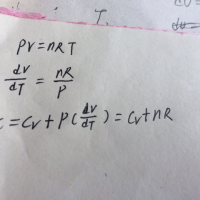 T.
PV=nRT
dV/dT = nR/P
C = CV + P(dV/dT) = CV + nR